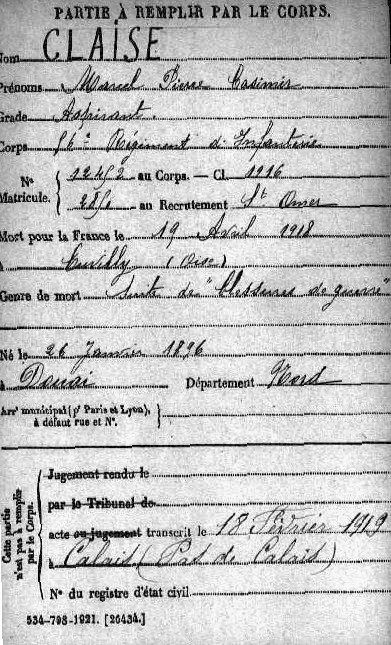 PARTIE À REMPLIR PAR LE CORPS.
Nom CLAISE
Prénoms Marcel Pierre Casimir
Grade Aspirant.
Corps Régiment d'Infanterie
N° Matricule. { au Corps. — Cl. 1916
au Recrutement St Omer
Mort pour la France le 19 Avril 1918
à Cuvilly (Oise)
Genre de mort Suite de "blessures de guerre"
Né le 26 Janvier 1896
à Douai Département Nord
Arr' municipal (p' Paris et Lyon),
à défaut rue et N°.
Cette partie n'est pas à remplir par le Corps.
Jugement rendu le
par le Tribunal de
acte ou jugement transcrit le 18 Février 1919
à Calais (Pas de Calais)
N° du registre d'état civil
534-708-1921. [26434.]